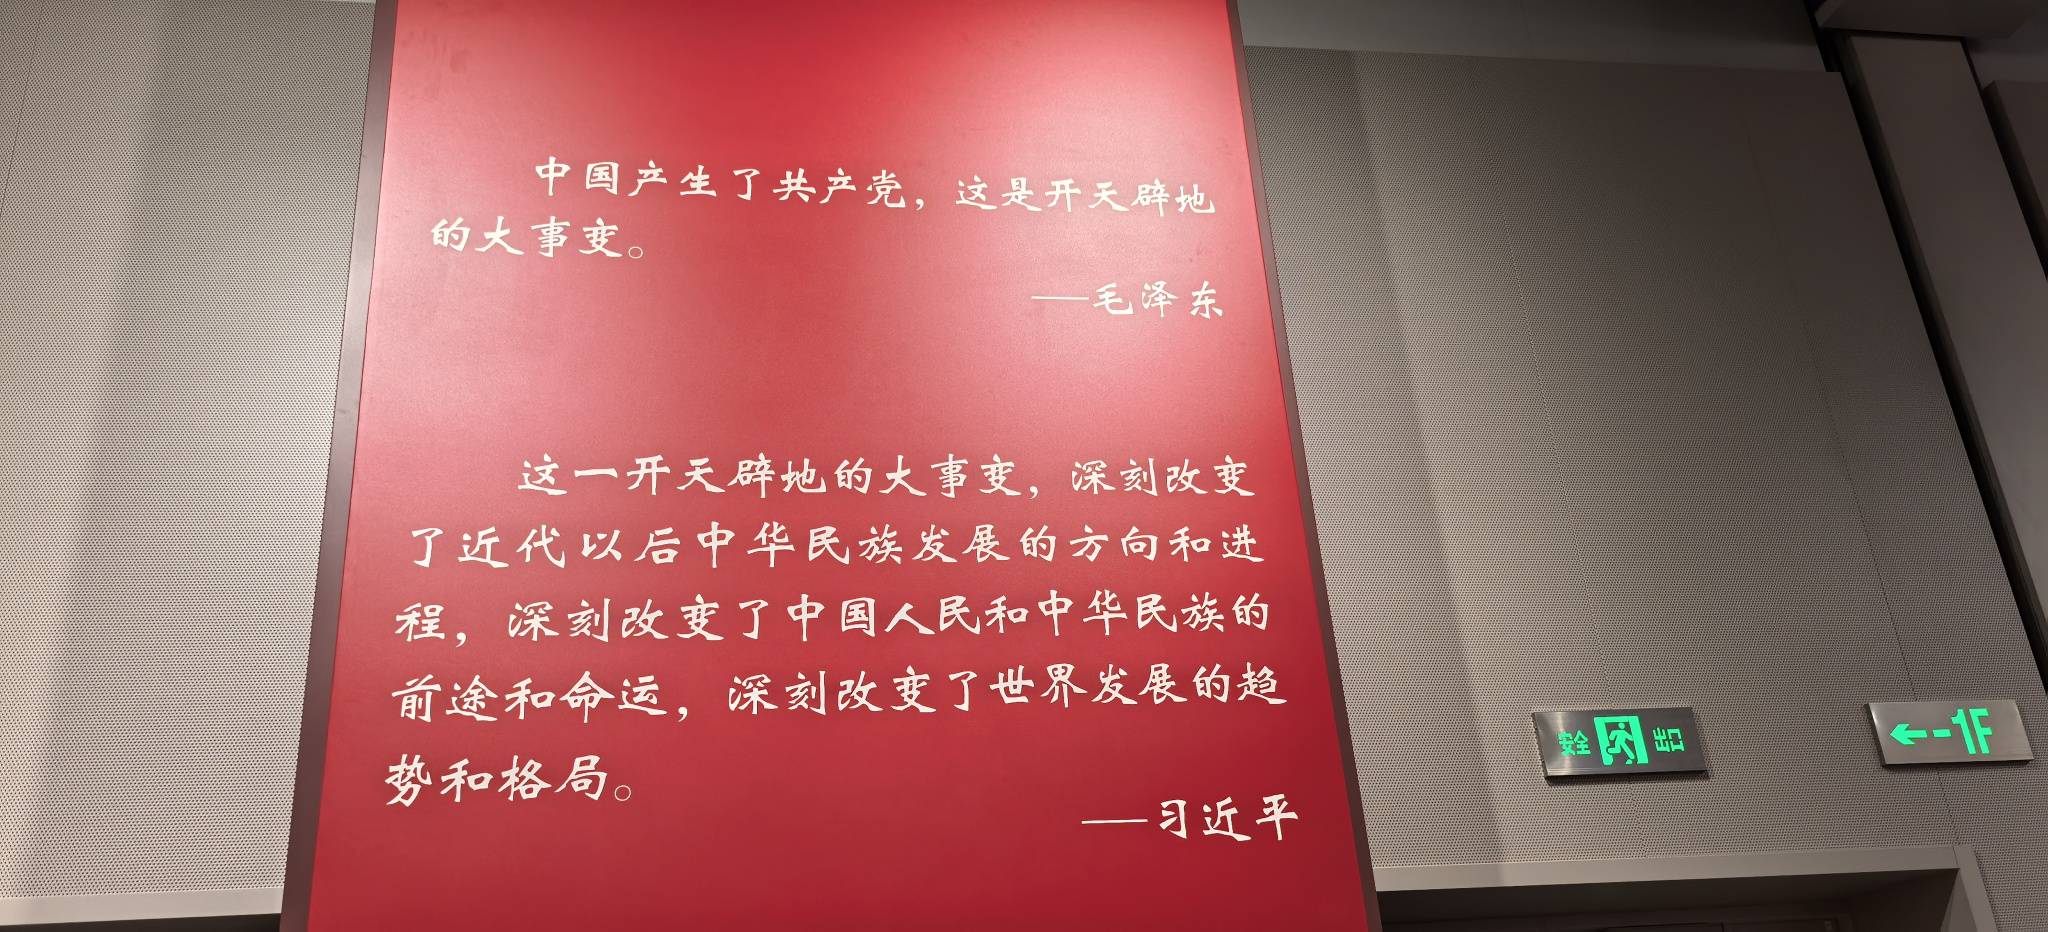 中国产生了共产党，这是开天辟地
的大事变。
——毛泽东
这一开天辟地的大事变，深刻改变
了近代以后中华民族发展的方向和进
程，深刻改变了中国人民和中华民族的
前途和命运，深刻改变了世界发展的趋
势和格局。
——习近平
安全 出口
←-1F